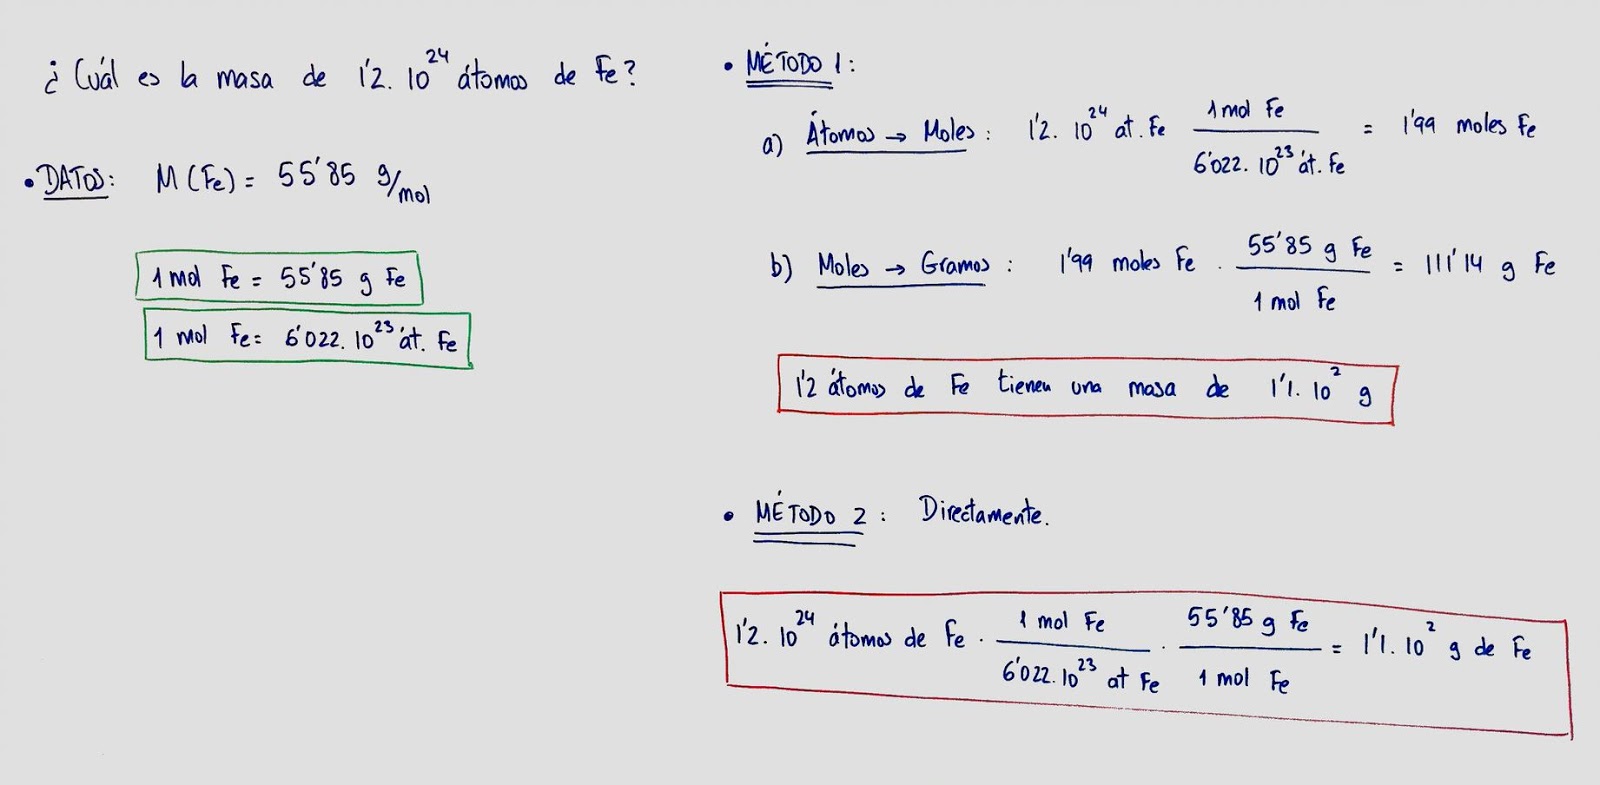 ¿Cuál es la masa de 1'2. 10^24 átomos de Fe?
• DATOS: M (Fe) = 55'85 g/mol
1 mol Fe = 55'85 g Fe
1 mol Fe = 6'022. 10^23 át. Fe
• MÉTODO 1:
a) Átomos → Moles: 1'2. 10^24 at. Fe 1 mol Fe / 6'022. 10^23 át. Fe = 1'99 moles Fe
b) Moles → Gramos: 1'99 moles Fe . 55'85 g Fe / 1 mol Fe = 111'14 g Fe
1'2 átomos de Fe tienen una masa de 1'1. 10^2 g
• MÉTODO 2: Directamente.
1'2. 10^24 átomos de Fe . 1 mol Fe / 6'022. 10^23 at Fe . 55'85 g Fe / 1 mol Fe = 1'1. 10^2 g de Fe